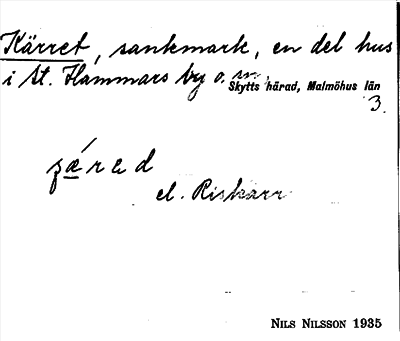 Kärret, sankmark, en del hus
i St. Hammars by o. m.
Skytts härad, Malmöhus län
3.
çǽrɛd
el. Riskärr
NILS NILSSON 1935